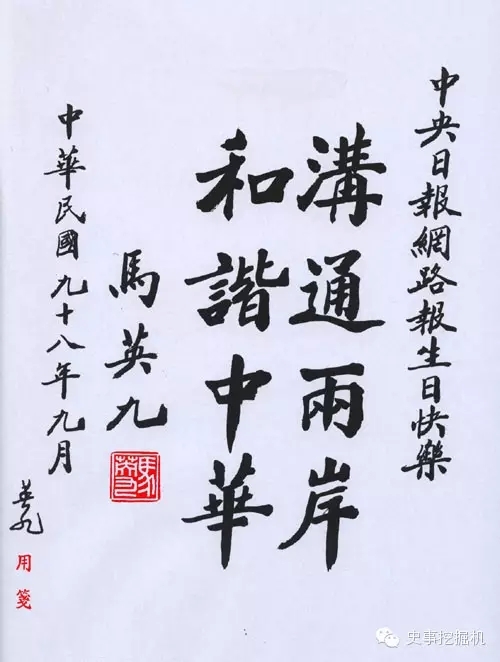 中央日報網路報生日快樂
溝通兩岸
和諧中華
馬英九
馬英九
中華民國九十八年九月
英九
用箋
史事挖掘机